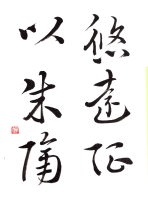 悠遠征
以朱